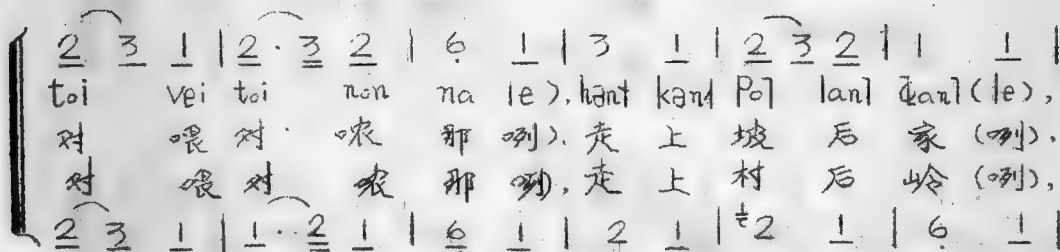 2 3 1 | 2 · 3 2 | 6 1 | 3 1 | 2 3 2 | 1 1 |
toi vei toi non na le), lan˥ (le),
对 喂 对 哝 那 咧). 走 上 坡 后 家 (咧).
对 喂 对 哝 那 咧), 走 上 村 后 岭 (咧),
2 3 1 | 1 · · 2 1 | 6 1 | 2 1 | 2 1 | 6 1